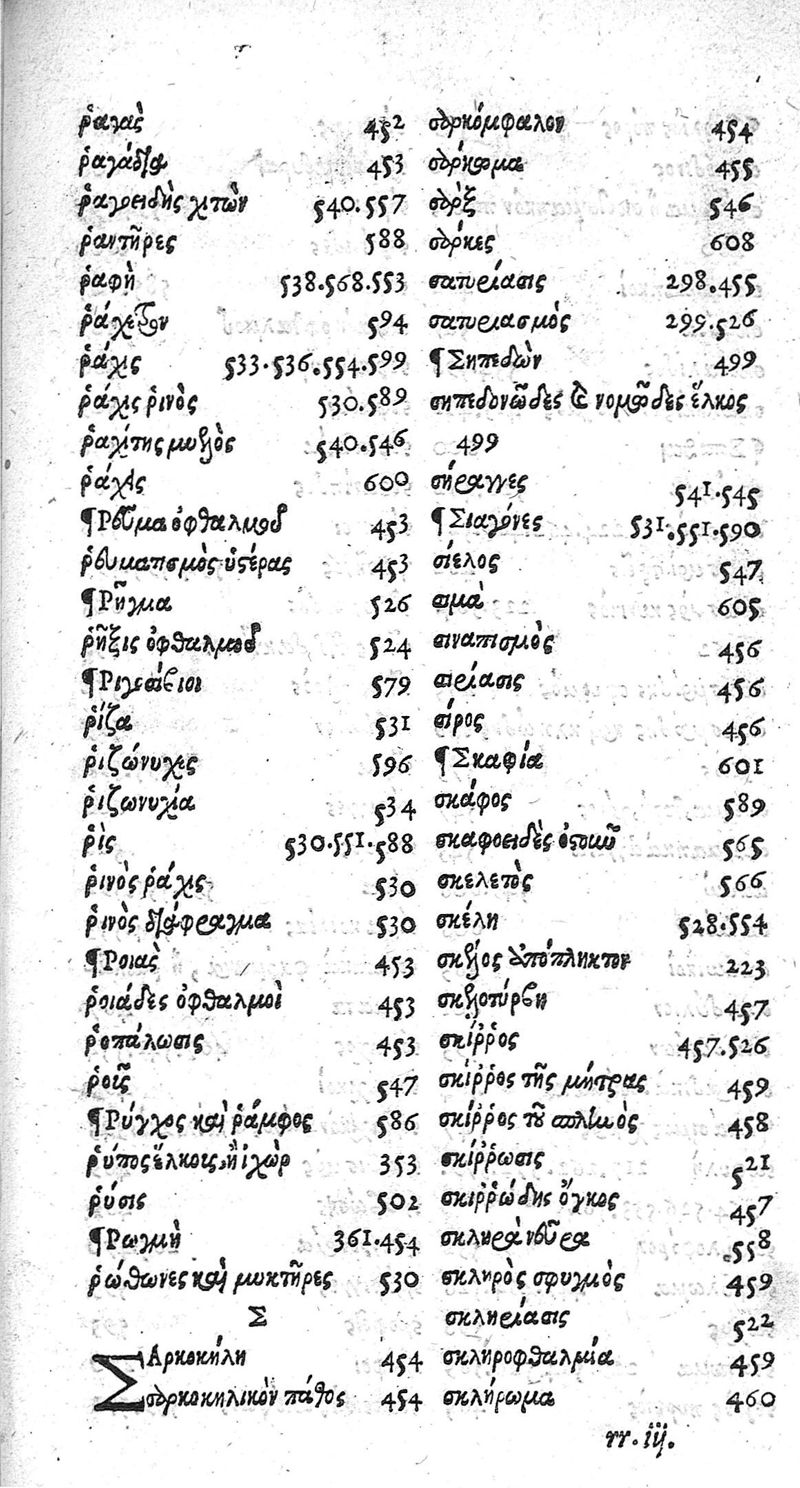 ῥαγὰς 452
ῥαγάδια 453
ῥαγοειδὴς χιτὼν 540.557
ῥαντῆρες 588
ῥαφὴ 538.568.553
594
ῥάχις 533.536.554.599
ῥάχις ῥινὸς 530.589
ῥαχίτης μυελὸς 540.546
ῥάχις 600
¶Ρεῦμα ὀφθαλμοῦ 453
ῥευματισμὸς ὑστέρας 453
¶Ρῆγμα 526
ῥῆξις ὀφθαλμοῦ 524
¶Ριγεσίβιοι 579
ῥίζα 531
ῥιζώνυχες 596
ῥιζωνυχία 534
ῥὶς 530.551.588
ῥινὸς ῥάχις 530
ῥινὸς διάφραγμα 530
¶Ροιὰς 453
ῥοιάδες ὀφθαλμοὶ 453
ῥοπάλωσις 453
ῥοῦς 547
¶Ρύγχος καὶ ῥάμφος 586
ῥύπος ἕλκοις, ἢ ἰχὼρ 353
ῥύσις 502
¶Ρωγμὴ 361.454
ῥώθωνες καὶ μυκτῆρες 530
Σ
ΣΑρκοκήλη 454
σαρκοκηλικὸν πάθος 454
σαρκόμφαλον 454
σάρκωμα 455
σὰρξ 546
σάρκες 608
σατυρίασις 298.455
σατυριασμὸς 299.526
¶Σηπεδὼν 499
σηπεδονῶδες καὶ νομῶδες ἕλκος
499
σήραγγες 541.545
¶Σιαγόνες 531.551.590
σίελος 547
σιμὰ 605
σιναπισμὸς 456
σιρίασις 456
σίρος 456
¶Σκαφία 601
σκάφος 589
σκαφοειδὲς ὀστοῦν 565
σκελετὸς 566
σκέλη 528.554
σκέλος ἀπόπληκτον 223
σκελοτύρβη 457
σκίῤῥος 457.526
σκίῤῥος τῆς μήτρας 459
σκίῤῥος τοῦ σπληνὸς 458
σκίῤῥωσις 521
σκιῤῥώδης ὄγκος 457
σκληρὰ νεῦρα 558
σκληρὸς σφυγμὸς 459
σκληρίασις 522
σκληροφθαλμία 459
σκλήρωμα 460
rr.iij.